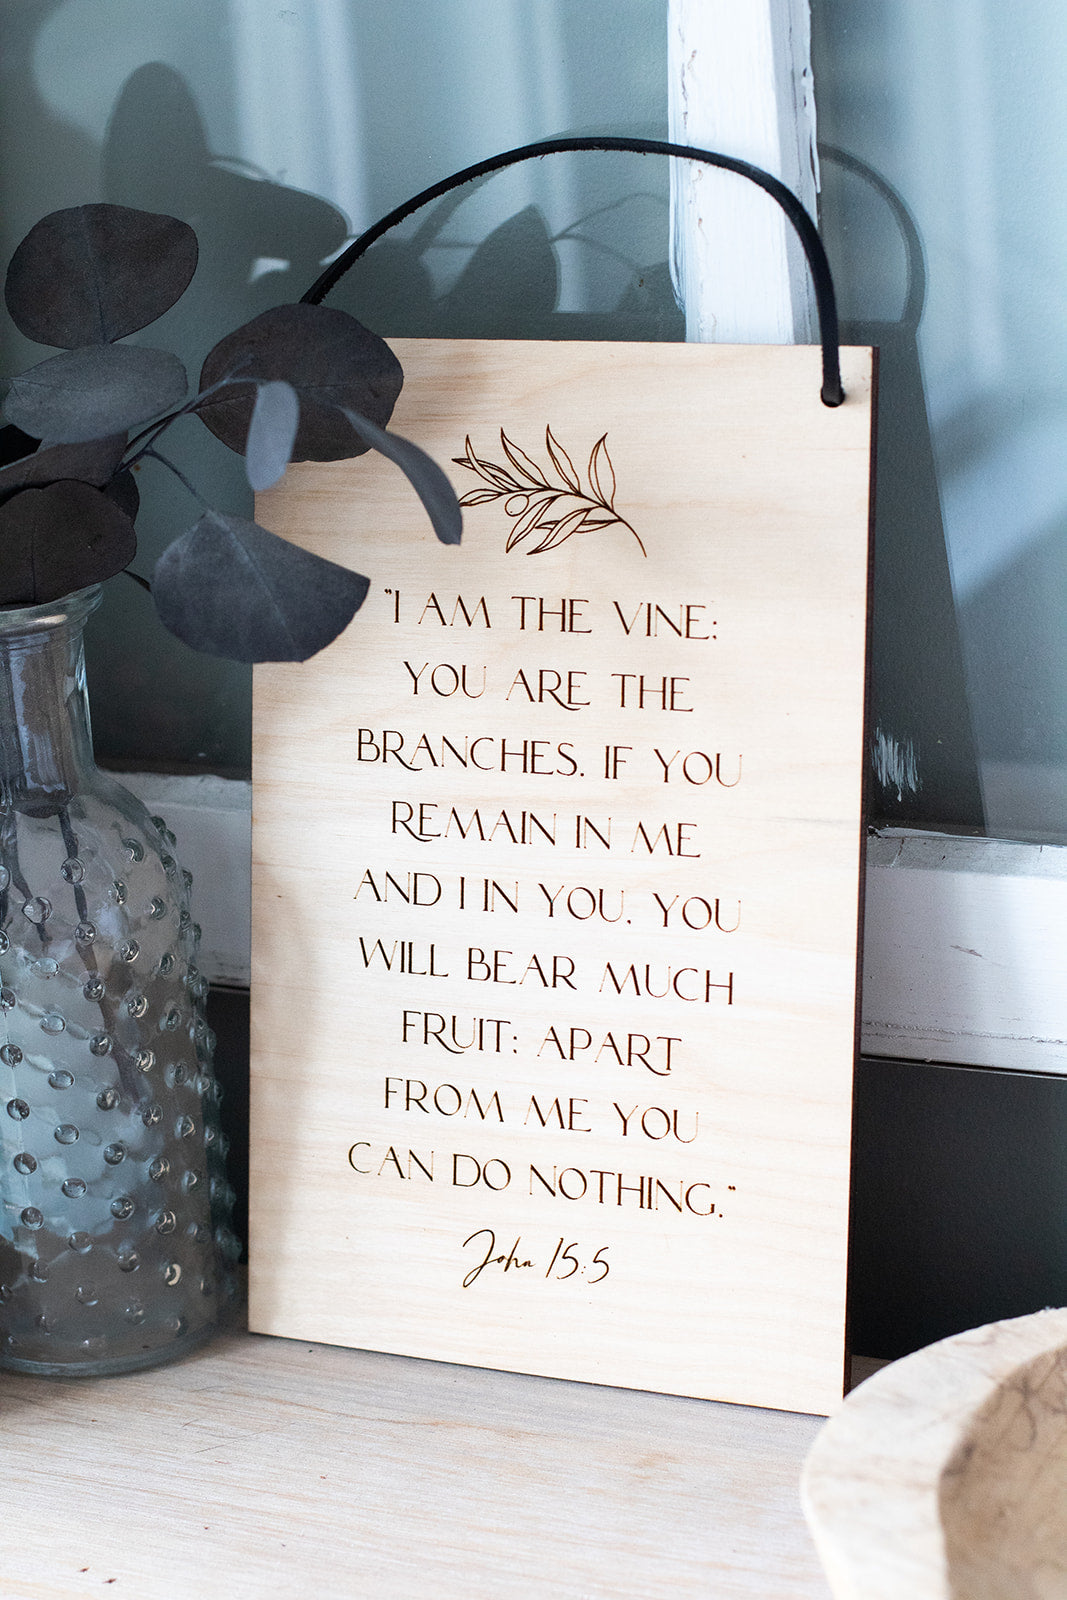 "I AM THE VINE;
YOU ARE THE
BRANCHES. IF YOU
REMAIN IN ME
AND I IN YOU, YOU
WILL BEAR MUCH
FRUIT; APART
FROM ME YOU
CAN DO NOTHING."
John 15:5